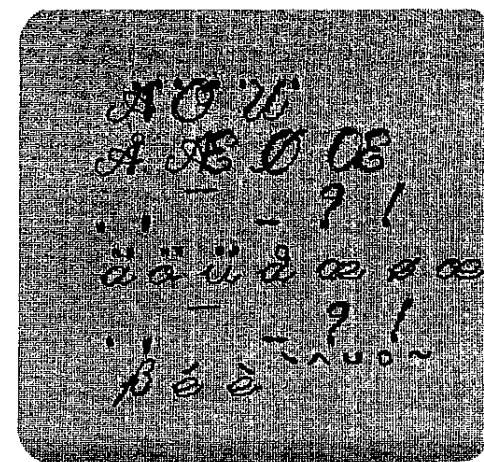 Ä Ö Ü
Å Æ Ø Œ
. , — - ? !
ä ö ü å æ ø œ
. , — - ? !
ß é è ` ^ ˘ ° ~